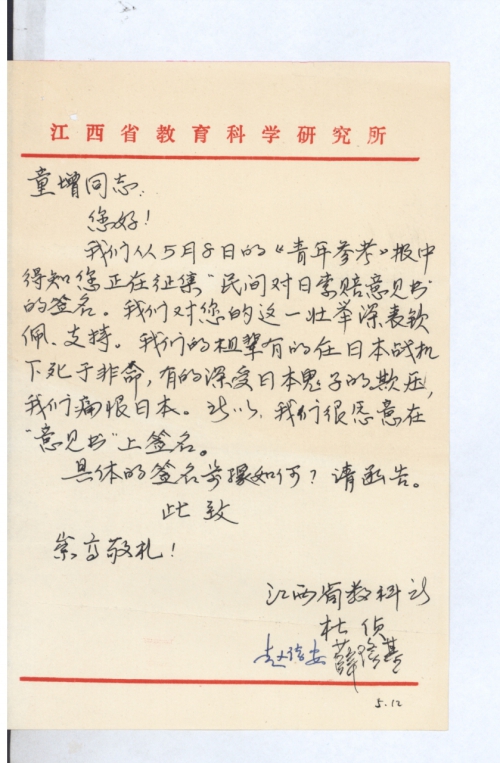 江西省教育科学研究所
童增同志:
您好!
我们从5月8日的《青年参考》报中
得知您正在征集“民间对日索赔意见书”
的签名。我们对您的这一壮举深表钦
佩、支持。我们的祖辈有的在日本战机
下死于非命,有的深受日本鬼子的欺压,
我们痛恨日本。所以,我们很愿意在
“意见书”上签名。
具体的签名步骤如何?请函告。
此致
崇高敬礼!
江西省教科所
杜侦
薛
5.12